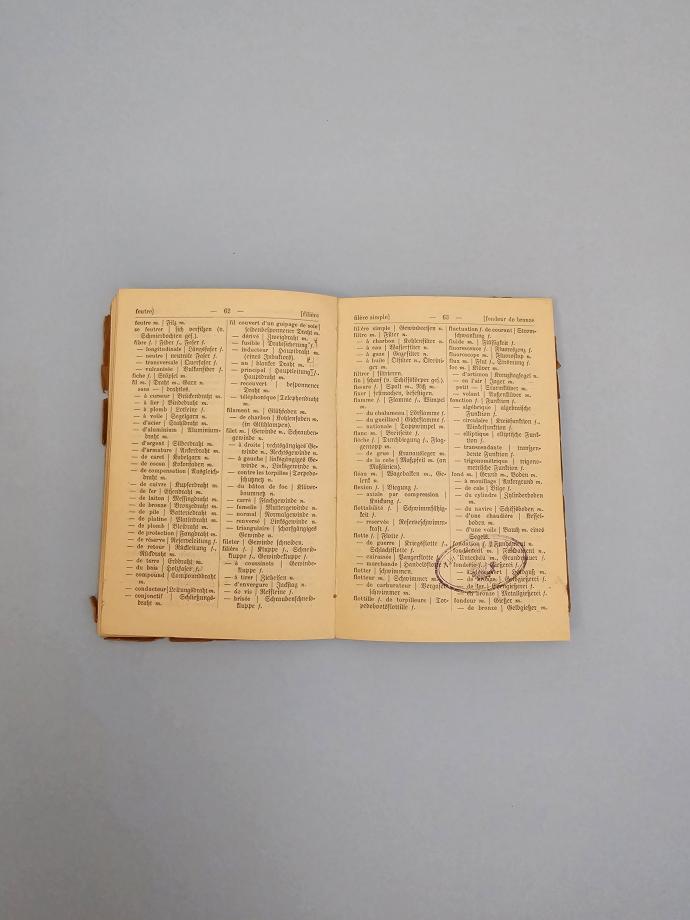 feutre]
— 62 —
[filière
feutre m. | Filz m.
se feutrer | sich verfilzen (v.
Schmierdochten gef.).
fibre f. | Fiber f., Faser f.
— longitudinale | Längsfaser f.
— neutre | neutrale Faser f.
— transversale | Querfaser f.
— vulcanisée | Vulkanfiber f.
fiche f. | Stöpsel m.
fil m. | Draht m., Garn n.
— sans — | drahtlos.
— à curseur | Brückendraht m.
— à lier | Bindedraht m.
— à plomb | Lotleine f.
— à voile | Segelgarn n.
— d'acier | Stahldraht m.
— d'aluminium | Aluminium-
draht m.
— d'argent | Silberdraht m.
— d'armature | Ankerdraht m.
— de caret | Kabelgarn n.
— de cocon | Kokonfaden m.
— de compensation | Ausgleich-
draht m.
— de cuivre | Kupferdraht m.
— de fer | Eisendraht m.
— de laiton | Messingdraht m.
— de bronze | Bronzedraht m.
— de pile | Batteriedraht m.
— de platine | Platindraht m.
— de plomb | Bleidraht m.
— de protection | Fangdraht m.
— de réserve | Reserveleitung f.
— de retour | Rückleitung f.,
Rückdraht m.
— de terre | Erddraht m.
— du bois | Holzfaser f.
— compound | Compounddraht
m.
— conducteur | Leitungsdraht m.
— conjonctif | Schließungs-
draht m.
fil couvert d'un guipage de soie |
seidenbesponnener Draht m.
— dérivé | Zweigdraht m.
— fusible | Drahtsicherung f.
— inducteur | Hauptdraht m.
(eines Induktors).
— nu | blanker Draht m.
— principal | Hauptleitung f.,
Hauptdraht m.
— recouvert | besponnener
Draht m.
— téléphonique | Telephondraht
m.
filament m. | Glühfaden m.
— de charbon | Kohlenfaden m.
(in Glühlampen).
filet m. | Gewinde n., Schrauben-
gewinde n.
— à droite | rechtsgängiges Ge-
winde n., Rechtsgewinde n.
— à gauche | linksgängiges Ge-
winde n., Linksgewinde n.
— contre les torpilles | Torpedo-
schutznetz n.
— du bâton de foc | Klüver-
baumnetz n.
— carré | Flachgewinde n.
— femelle | Muttergewinde n.
— normal | Normalgewinde n.
— renversé | Linksgewinde n.
— triangulaire | scharfgängiges
Gewinde n.
fileter | Gewinde schneiden.
filière f. | Kluppe f., Schneid-
kluppe f., Gewindekluppe f.
— à coussinets | Gewinde-
kluppe f.
— à tirer | Zieheisen n.
— d'envergure | Jackstag n.
— de vis | Reffleine f.
— brisée | Schraubenschneid-
kluppe f.
filère simple]
— 63 —
[fondeur de bronze
filière simple | Gewindeeisen n.
filtre m. | Filter n.
— à charbon | Kohlenfilter n.
— à eau | Wasserfilter n.
— à gaze | Gazefilter n.
— à huile | Ölfilter n., Ölreini-
ger m.
filtrer | filtrieren.
fin | scharf (v. Schiffskörper gef.).
fissure f. | Spalt m., Riß m.
fixer | festmachen, befestigen.
flamme f. | Flamme f., Wimpel
m.
— du chalumeau | Lötflamme f.
— du gueulard | Gichtflamme f.
— nationale | Toppwimpel m.
flanc m. | Breitseite f.
flèche f. | Durchbiegung f., Flag-
gentopp m.
— de grue | Kranausleger m.
— de la cote | Maßpfeil m. (an
Maßlinien).
fléau m. | Wagebalken m., Ge-
lenk n.
flexion f. | Biegung f.
— axiale par compression |
Knickung f.
flottabilité f. | Schwimmfähig-
keit f.
— réservée | Reserveschwimm-
kraft f.
flotte f. | Flotte f.
— de guerre | Kriegsflotte f.,
Schlachtflotte f.
— cuirassée | Panzerflotte f.
— marchande | Handelsflotte f.
flotter | schwimmen.
flotteur m. | Schwimmer m.
— de carburateur | Vergaser-
schwimmer m.
flottille f. de torpilleurs | Tor-
pedobootsflottille f.
fluctuation f. de courant | Strom-
schwankung f.
fluide m. | Flüssigkeit f.
fluorescence f. | Fluoreszenz f.
fluoroscope m. | Fluoroskop n.
flux m. | Flut f., Strömung f.
foc m. | Klüver m.
— d'artimon | Kreuzstagsegel n.
— en l'air | Jager m.
petit — | Sturmklüver m.
— volant | Außenklüver m.
fonction f. | Funktion f.
— algébrique | algebraische
Funktion f.
— circulaire | Kreisfunktion f.,
Winkelfunktion f.
— elliptique | elliptische Funk-
tion f.
— transcendante | transzen-
dente Funktion f.
— trigonométrique | trigono-
metrische Funktion f.
fond m. | Grund m., Boden m.
— à mouillage | Ankergrund m.
— de cale | Bilge f.
— du cylindre | Zylinderboden
m.
— du navire | Schiffsboden m.
— d'une chaudière | Kessel-
boden m.
— d'une voile | Bauch m. eines
Segels.
fondation f. | Fundament n.
fondement m. | Fundament n.,
Unterbau m., Grundmauer f.
fonderie f. | Gießerei f.
— de bronze | Gelbgießerei f.
— de fer | Eisengießerei f.
— en bronze | Metallgießerei f.
fondeur m. | Gießer m.
— de bronze | Gelbgießer m.